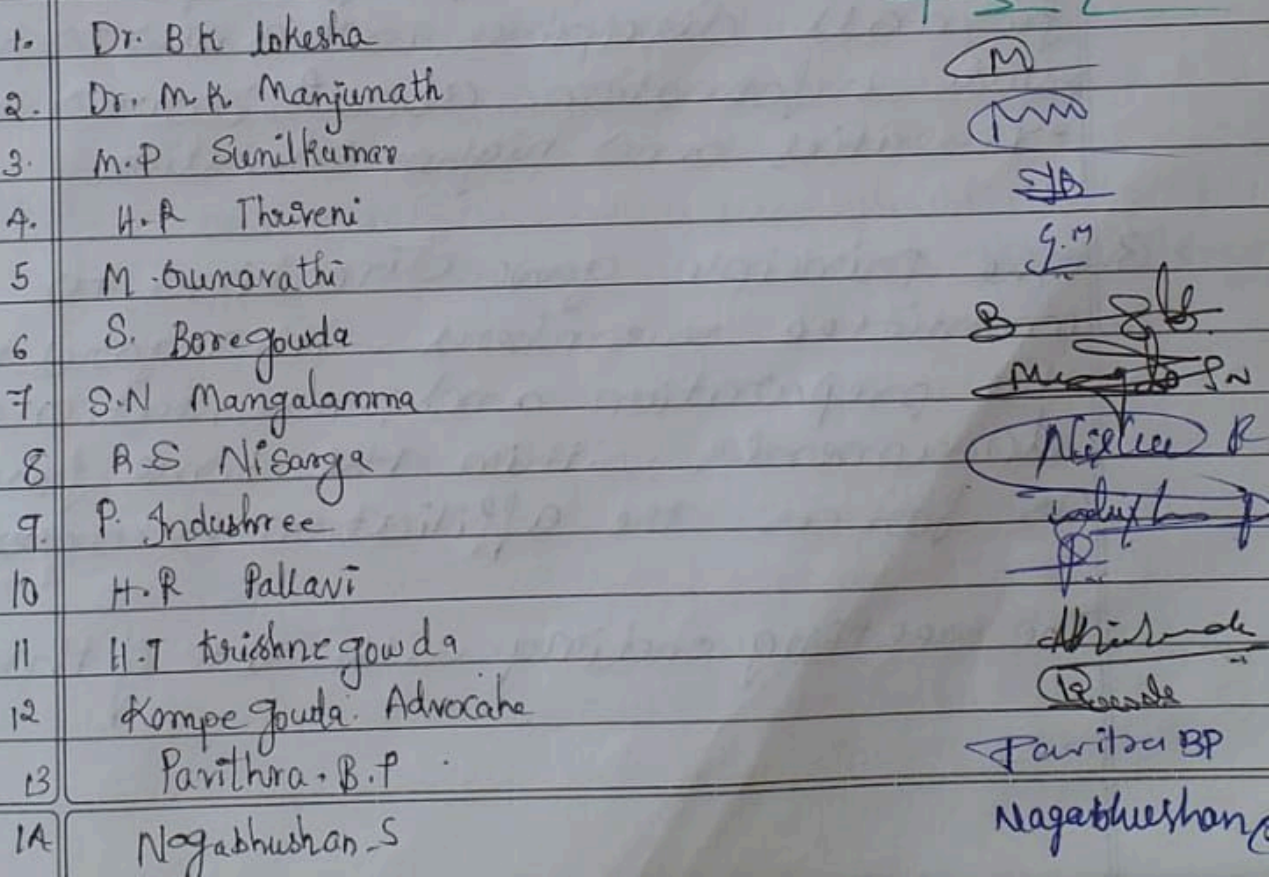 1. Dr. B K Lokesha
2. Dr. M K Manjunath M
3. M.P Sunilkumar MM
4. H.R Thriveni
5 M. Gunavathi G.M
6 S. Boregowda B
7 S.N Mangalamma S N
8 R.S Nisarga R
9. P. Indushree
10 H.R Pallavi
11 H.T Krishnegowda
12 Kempegouda. Advocate
13 Pavithra. B.P Pavitra BP
14 Nagabhushan_S Nagabhushan